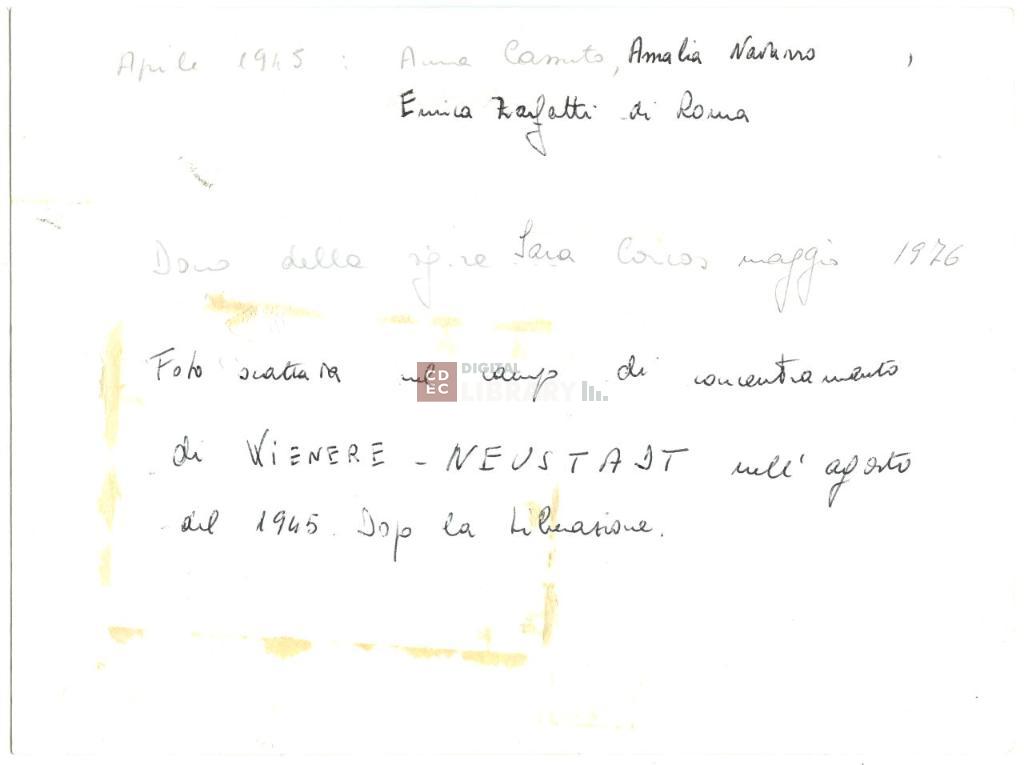 Aprile 1945 : Anna Cassuto, Amalia Navarro ,
Enrica Zarfatti di Roma
Dono della sig.re Sara Corcos maggio 1976
Foto scattata nel campo di concentramento
CDEC DIGITAL LIBRARY
di WiENERE - NEUSTADT nell' agosto
del 1945. Dopo la Liberazione.